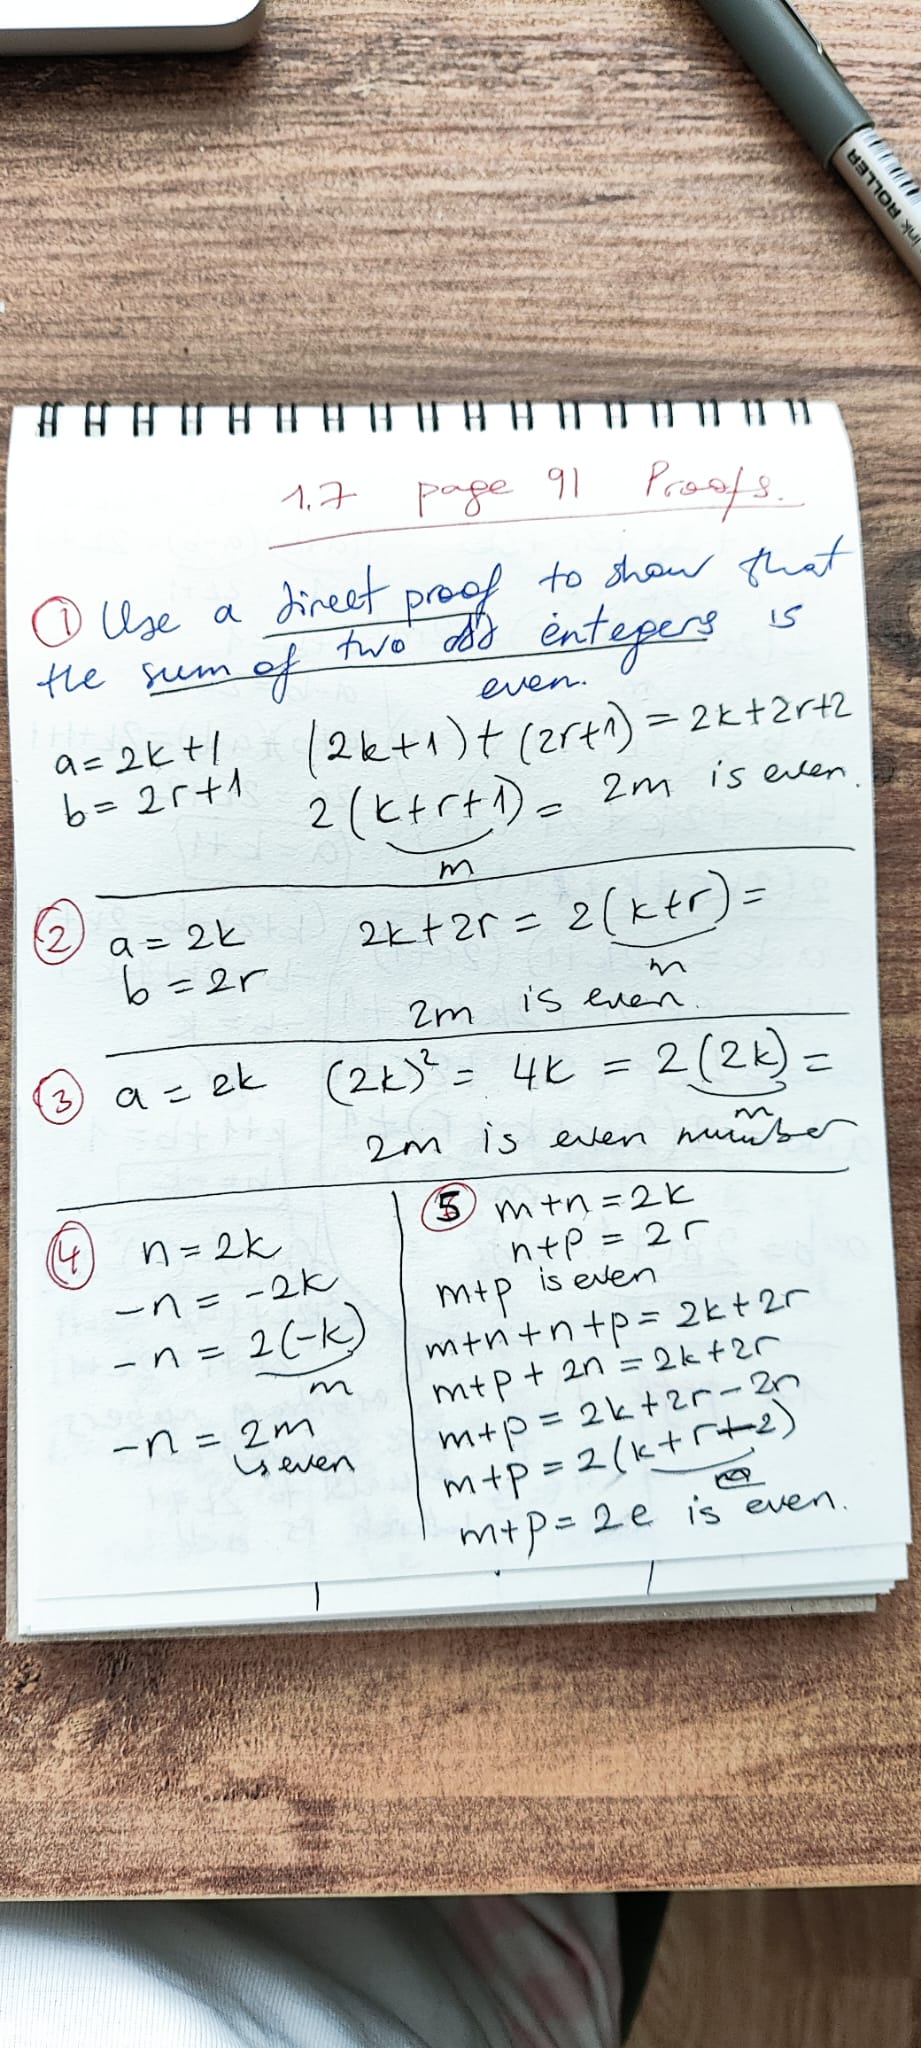 ink ROLLER
1.7 page 91 Proofs.
① Use a direct proof to show that
the sum of two odd entegers is
even.
a = 2k+1 (2k+1)+(2r+1) = 2k+2r+2
b = 2r+1 2(k+r+1) = 2m is even.
m
② a = 2k 2k+2r = 2(k+r) =
b = 2r m
2m is even.
③ a = 2k (2k)² = 4k = 2(2k) =
m
2m is even number
④ n = 2k
-n = -2k
-n = 2(-k)
m
-n = 2m
↳ even
⑤ m+n = 2k
n+p = 2r
m+p is even
m+n+n+p = 2k+2r
m+p+2n = 2k+2r
m+p = 2k+2r-2n
m+p = 2(k+r+2)
e
m+p = 2e is even.